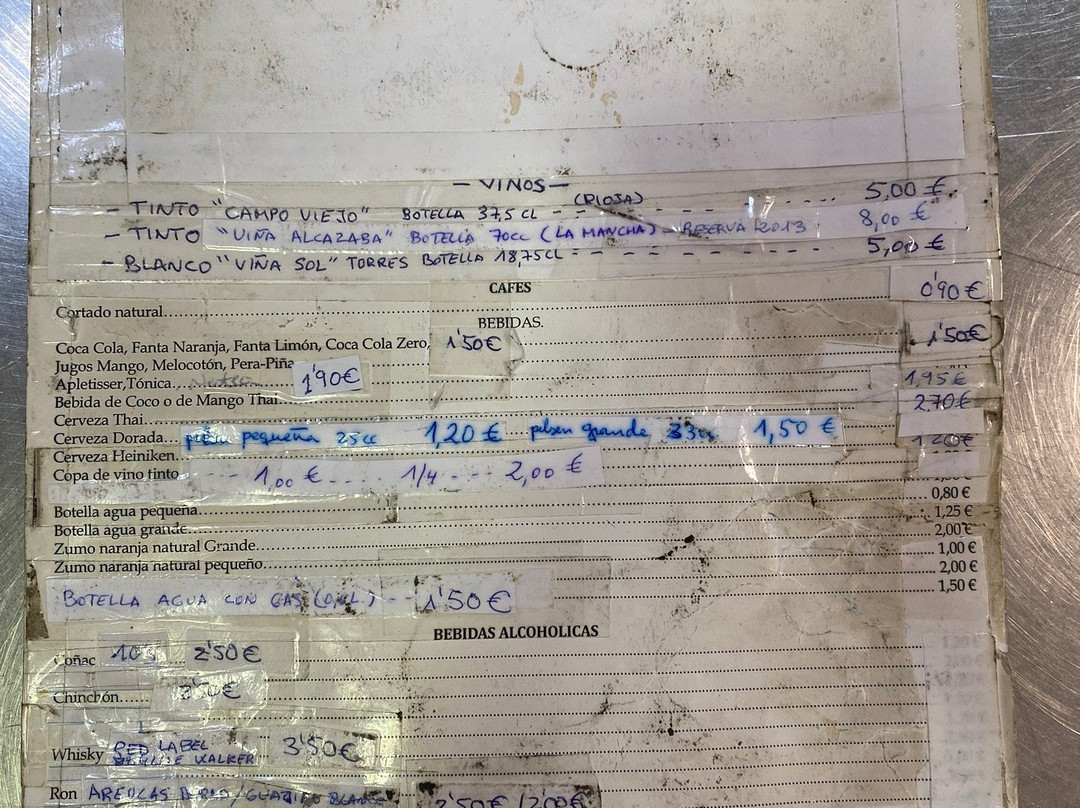 - VINOS -
- TINTO "CAMPO VIEJO" BOTELLA 37,5 CL - (RIOJA) 5,00 €.
- TINTO "VIÑA ALCAZABA" BOTELLA 70CC (LA MANCHA) - RESERVA 2013 8,00 €
- BLANCO "VIÑA SOL" TORRES BOTELLA 18,75CL 5,00 €
CAFES
Cortado natural 0'90€
BEBIDAS.
Coca Cola, Fanta Naranja, Fanta Limón, Coca Cola Zero, 1'50€ 1'50€
Jugos Mango, Melocotón, Pera-Piña
Apletisser,Tónica 1'90€ 1,95€
Bebida de Coco o de Mango Thai 2,70€
Cerveza Thai
Cerveza Dorada pequeña 25cc 1,20 € grande 33cc 1,50 € 1,20€
Cerveza Heiniken
Copa de vino tinto 1,00 € 1/4 2,00 €
0,80 €
Botella agua pequeña 1,25 €
Botella agua grande 2,00 €
Zumo naranja natural Grande 1,00 €
Zumo naranja natural pequeño 2,00 €
1,50 €
BOTELLA AGUA CON GAS 1'50€
BEBIDAS ALCOHOLICAS
Coñac 103 2'50€
Chinchón
Whisky RED LABEL 3'50€
WALKER
Ron